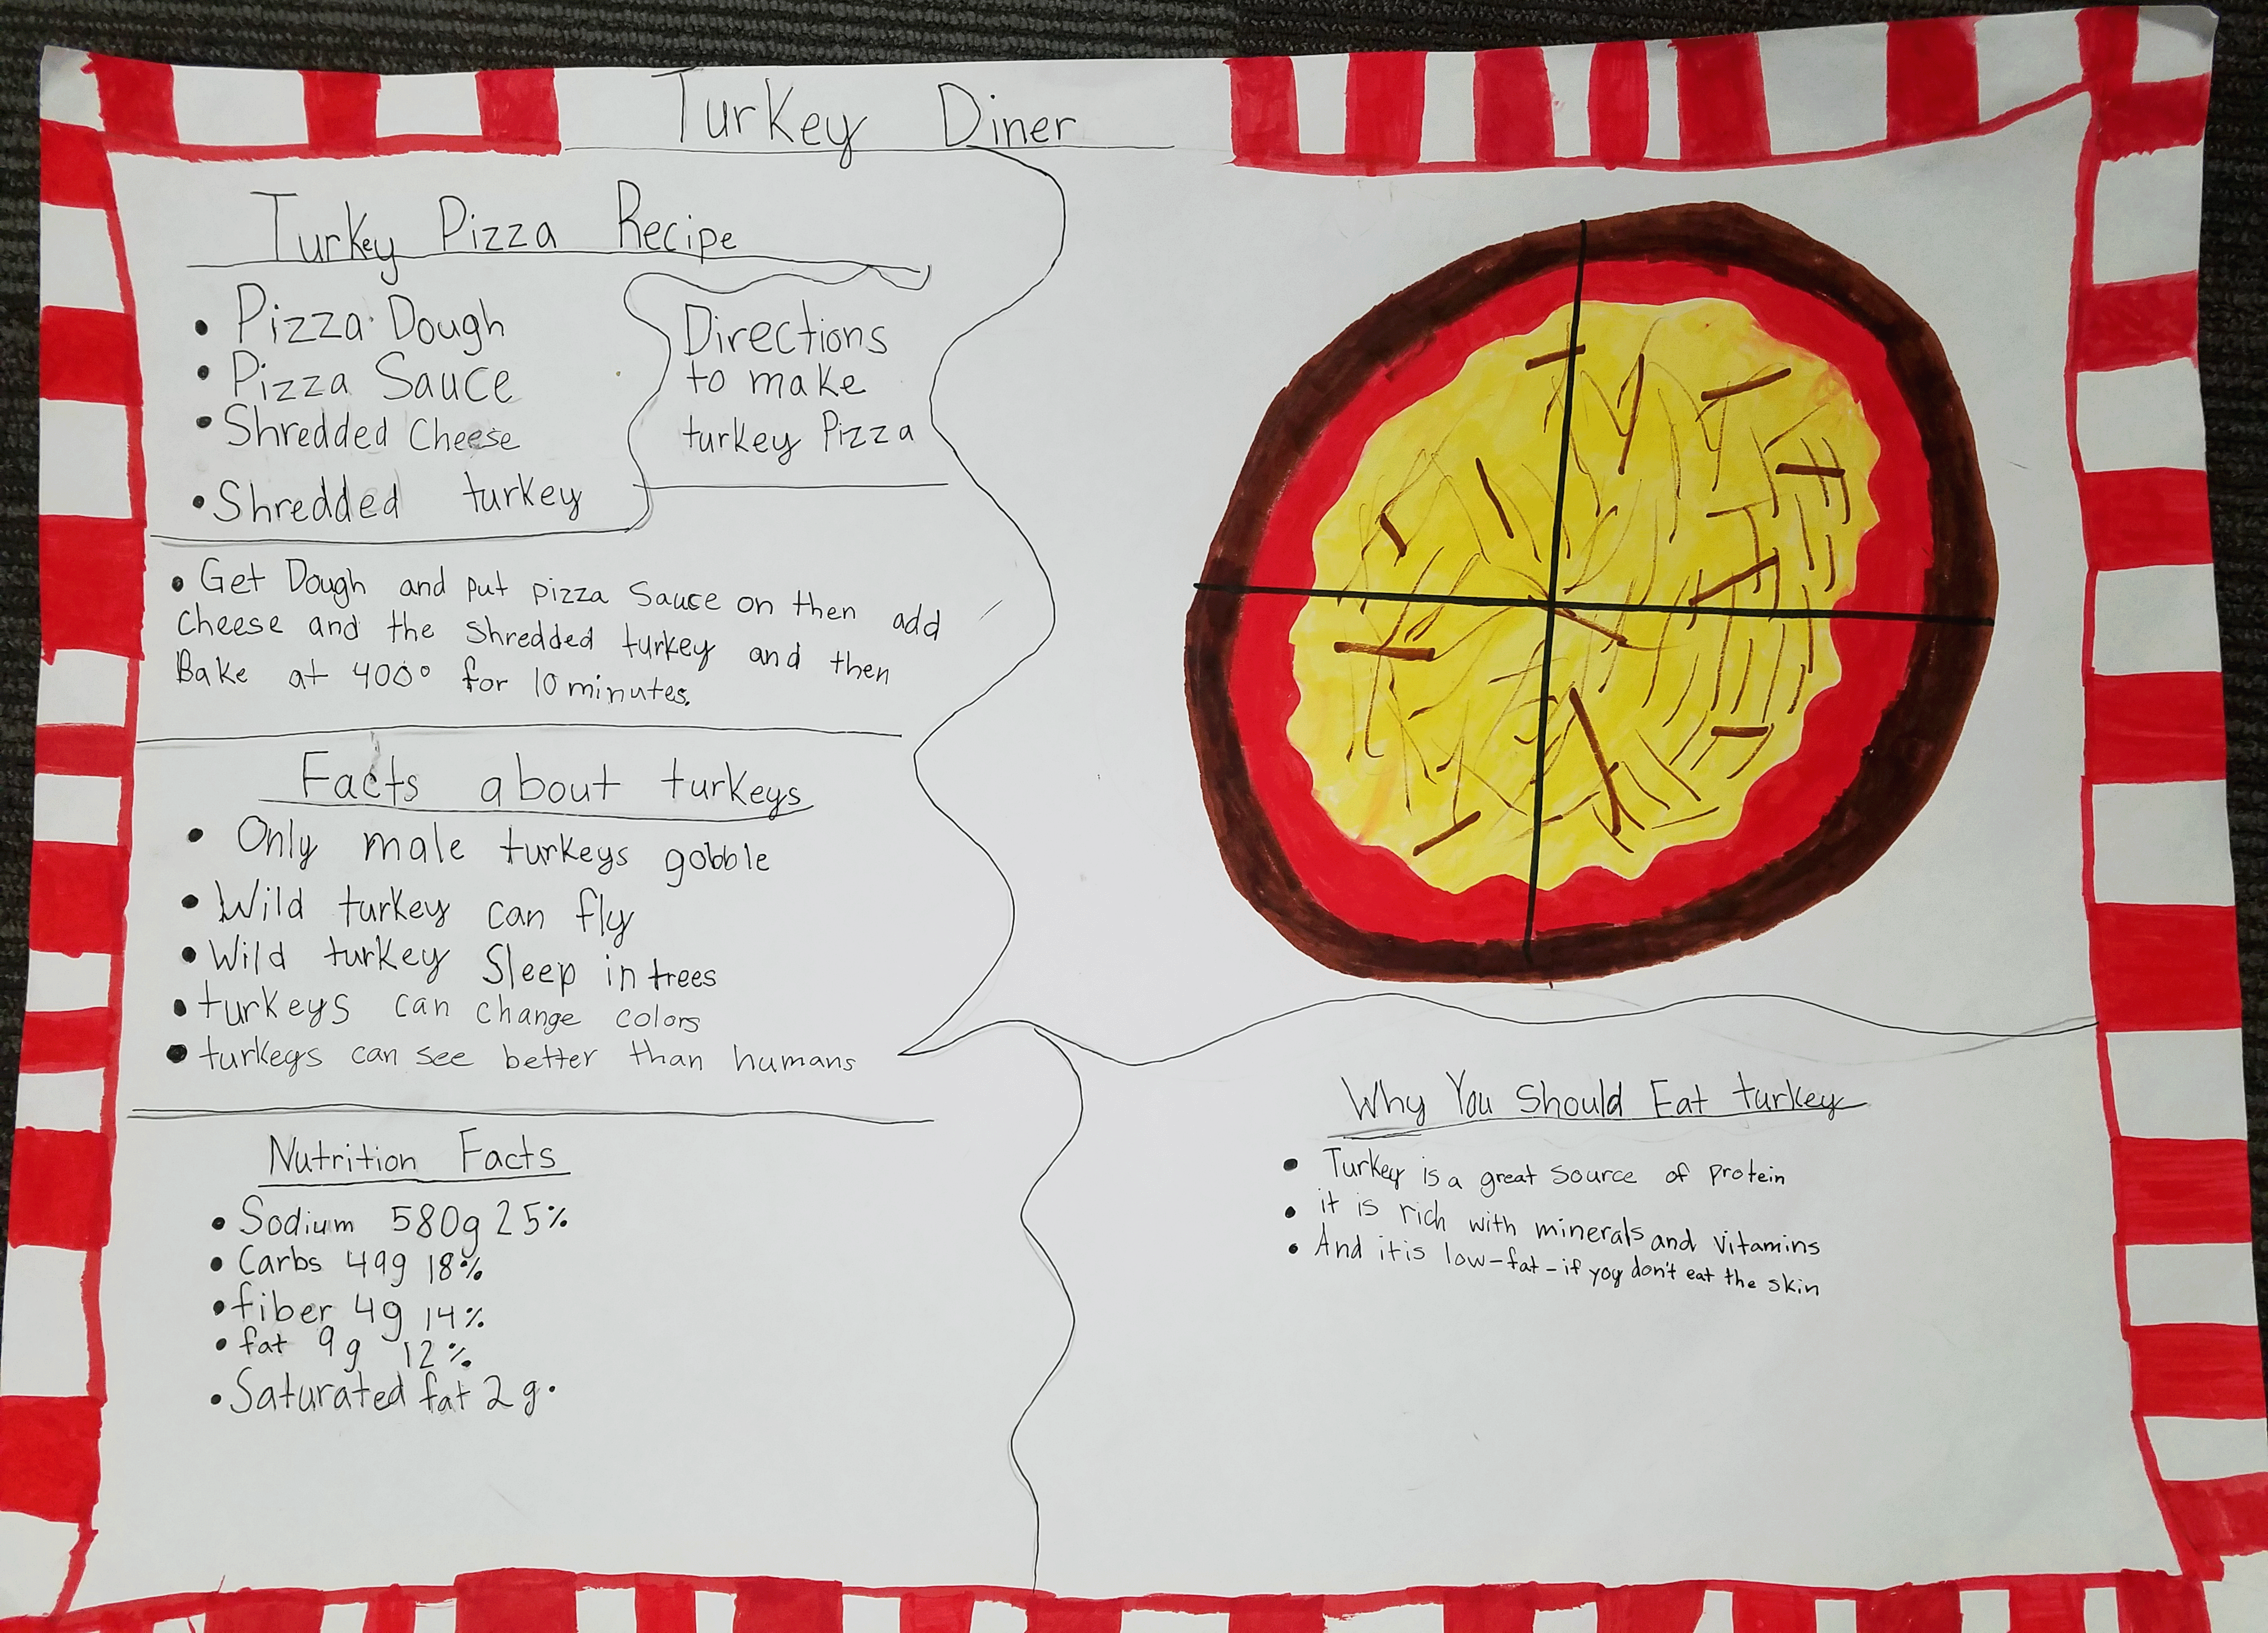 Turkey Diner
Turkey Pizza Recipe
• Pizza Dough
• Pizza Sauce
• Shredded Cheese
• Shredded turkey
Directions
to make
turkey Pizza
• Get Dough and put pizza Sauce on then add
Cheese and the Shredded turkey and then
Bake at 400° for 10 minutes.
Facts about turkeys
• Only male turkeys gobble
• Wild turkey can fly
• Wild turkey Sleep in trees
• turkeys can change colors
• turkeys can see better than humans
Nutrition Facts
• Sodium 580g 25%
• Carbs 49g 18%
• fiber 4g 14%
• fat 9g 12%
• Saturated fat 2g.
Why You Should Eat turkey
• Turkey is a great source of protein
• it is rich with minerals and vitamins
• And it is low-fat-if you don't eat the skin